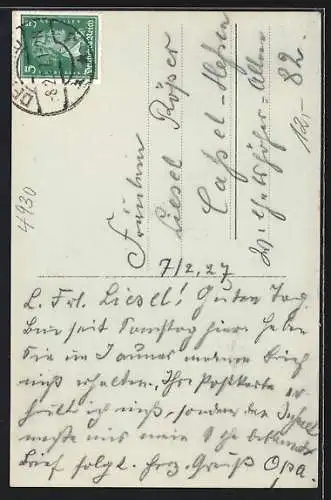 5 Deutsches Reich 5
Fräulein
Liesel Röser
Cassel-Hessen
Wilhelmshöher-Allee
82.
12,-
4930
7/2.27
L. Frl. Liesel! Guten Tag.
Bin seit Samstag hier. Haben
Sie im Taunus meinen Brief
nicht erhalten. Ihre Postkarte er
hielt ich nicht, sondern den Inhalt
mir mein
Brief folgt. Herz. Gruß Opa.